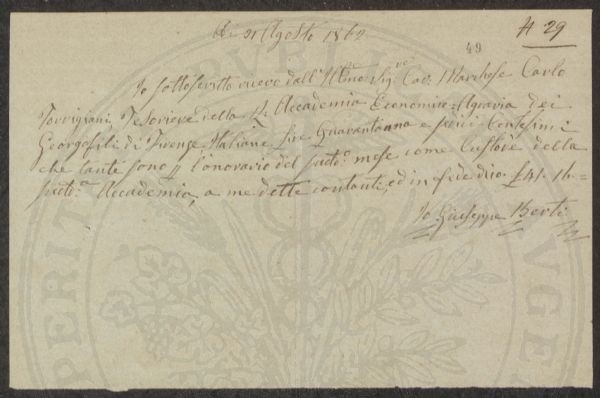 A dì 31 Agosto 1862
N 29
49
Io sottoscritto ricevo dall' Ill.mo Sig.re Cav. Marchese Carlo
Torrigiani, Tesoriere della R. Accademia Economico-Agraria dei
Georgofili di Firenze Italiane Lire Quarantauna e sedici Centesimi
che tante sono l'onorario del sudto. mese come Custode della
sudta. Accademia, a me dette contante, ed in fede dico £ 41. 16=
Io Giuseppe Berti
PERITATI
PVBLICAE